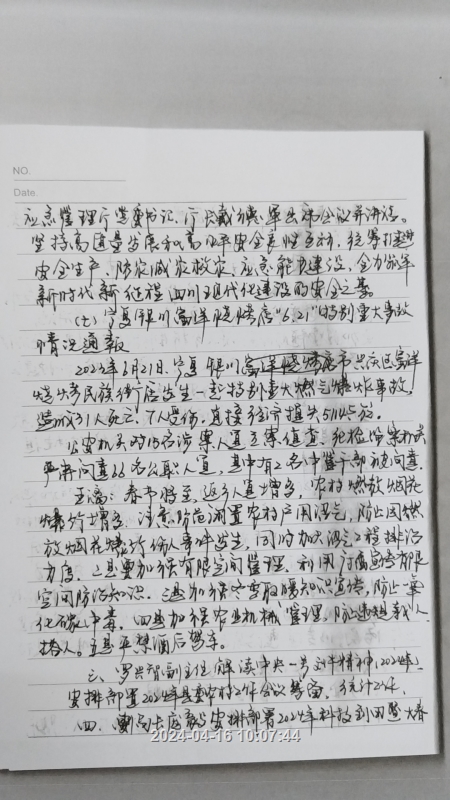 NO.
Date.
应急管理厅党委书记、厅长戴 军出席会议并讲话。
坚持高质量发展和高水平安全良性互动,统筹打
安全生产、防灾减灾救灾、应急能力建设,全力筑牢
新时代新征程四川现代化建设的安全之基。
(七)宁夏银川富洋烧烤店“6.21”特别重大事故
情况通报
2023年6月21日,宁夏银川 市兴庆区富洋
烧烤民族街店发生一起特别重大燃气爆炸事故,
造成31人死亡,7人受伤,直接经济损失5114.5万。
公安机关对15名涉案人员立案侦查,纪检监察机关
严肃问责 名公职人员,其中有2名中管干部被问责。
王 :春节将至,返乡人员增多,农村燃放烟花
爆竹增多,注意防范闲置农村户用沼气,防止因燃
放烟花爆竹伤人事件发生,同时加大沼气工程排治
力度。二是要加强有限空间管理,利用 宣传有限
空间防治知识。三是加强 取暖知识宣传,防止一氧
化碳中毒。四是加强农业机械管理,防止违规载人
搭人。五是严禁酒后驾车。
三、罗 副主任解读中央一号文件精神,2024年
安排部署2024年县 工作会议筹备,
四、 安排部署2024年科技 大春
2024-04-16 10:07:44